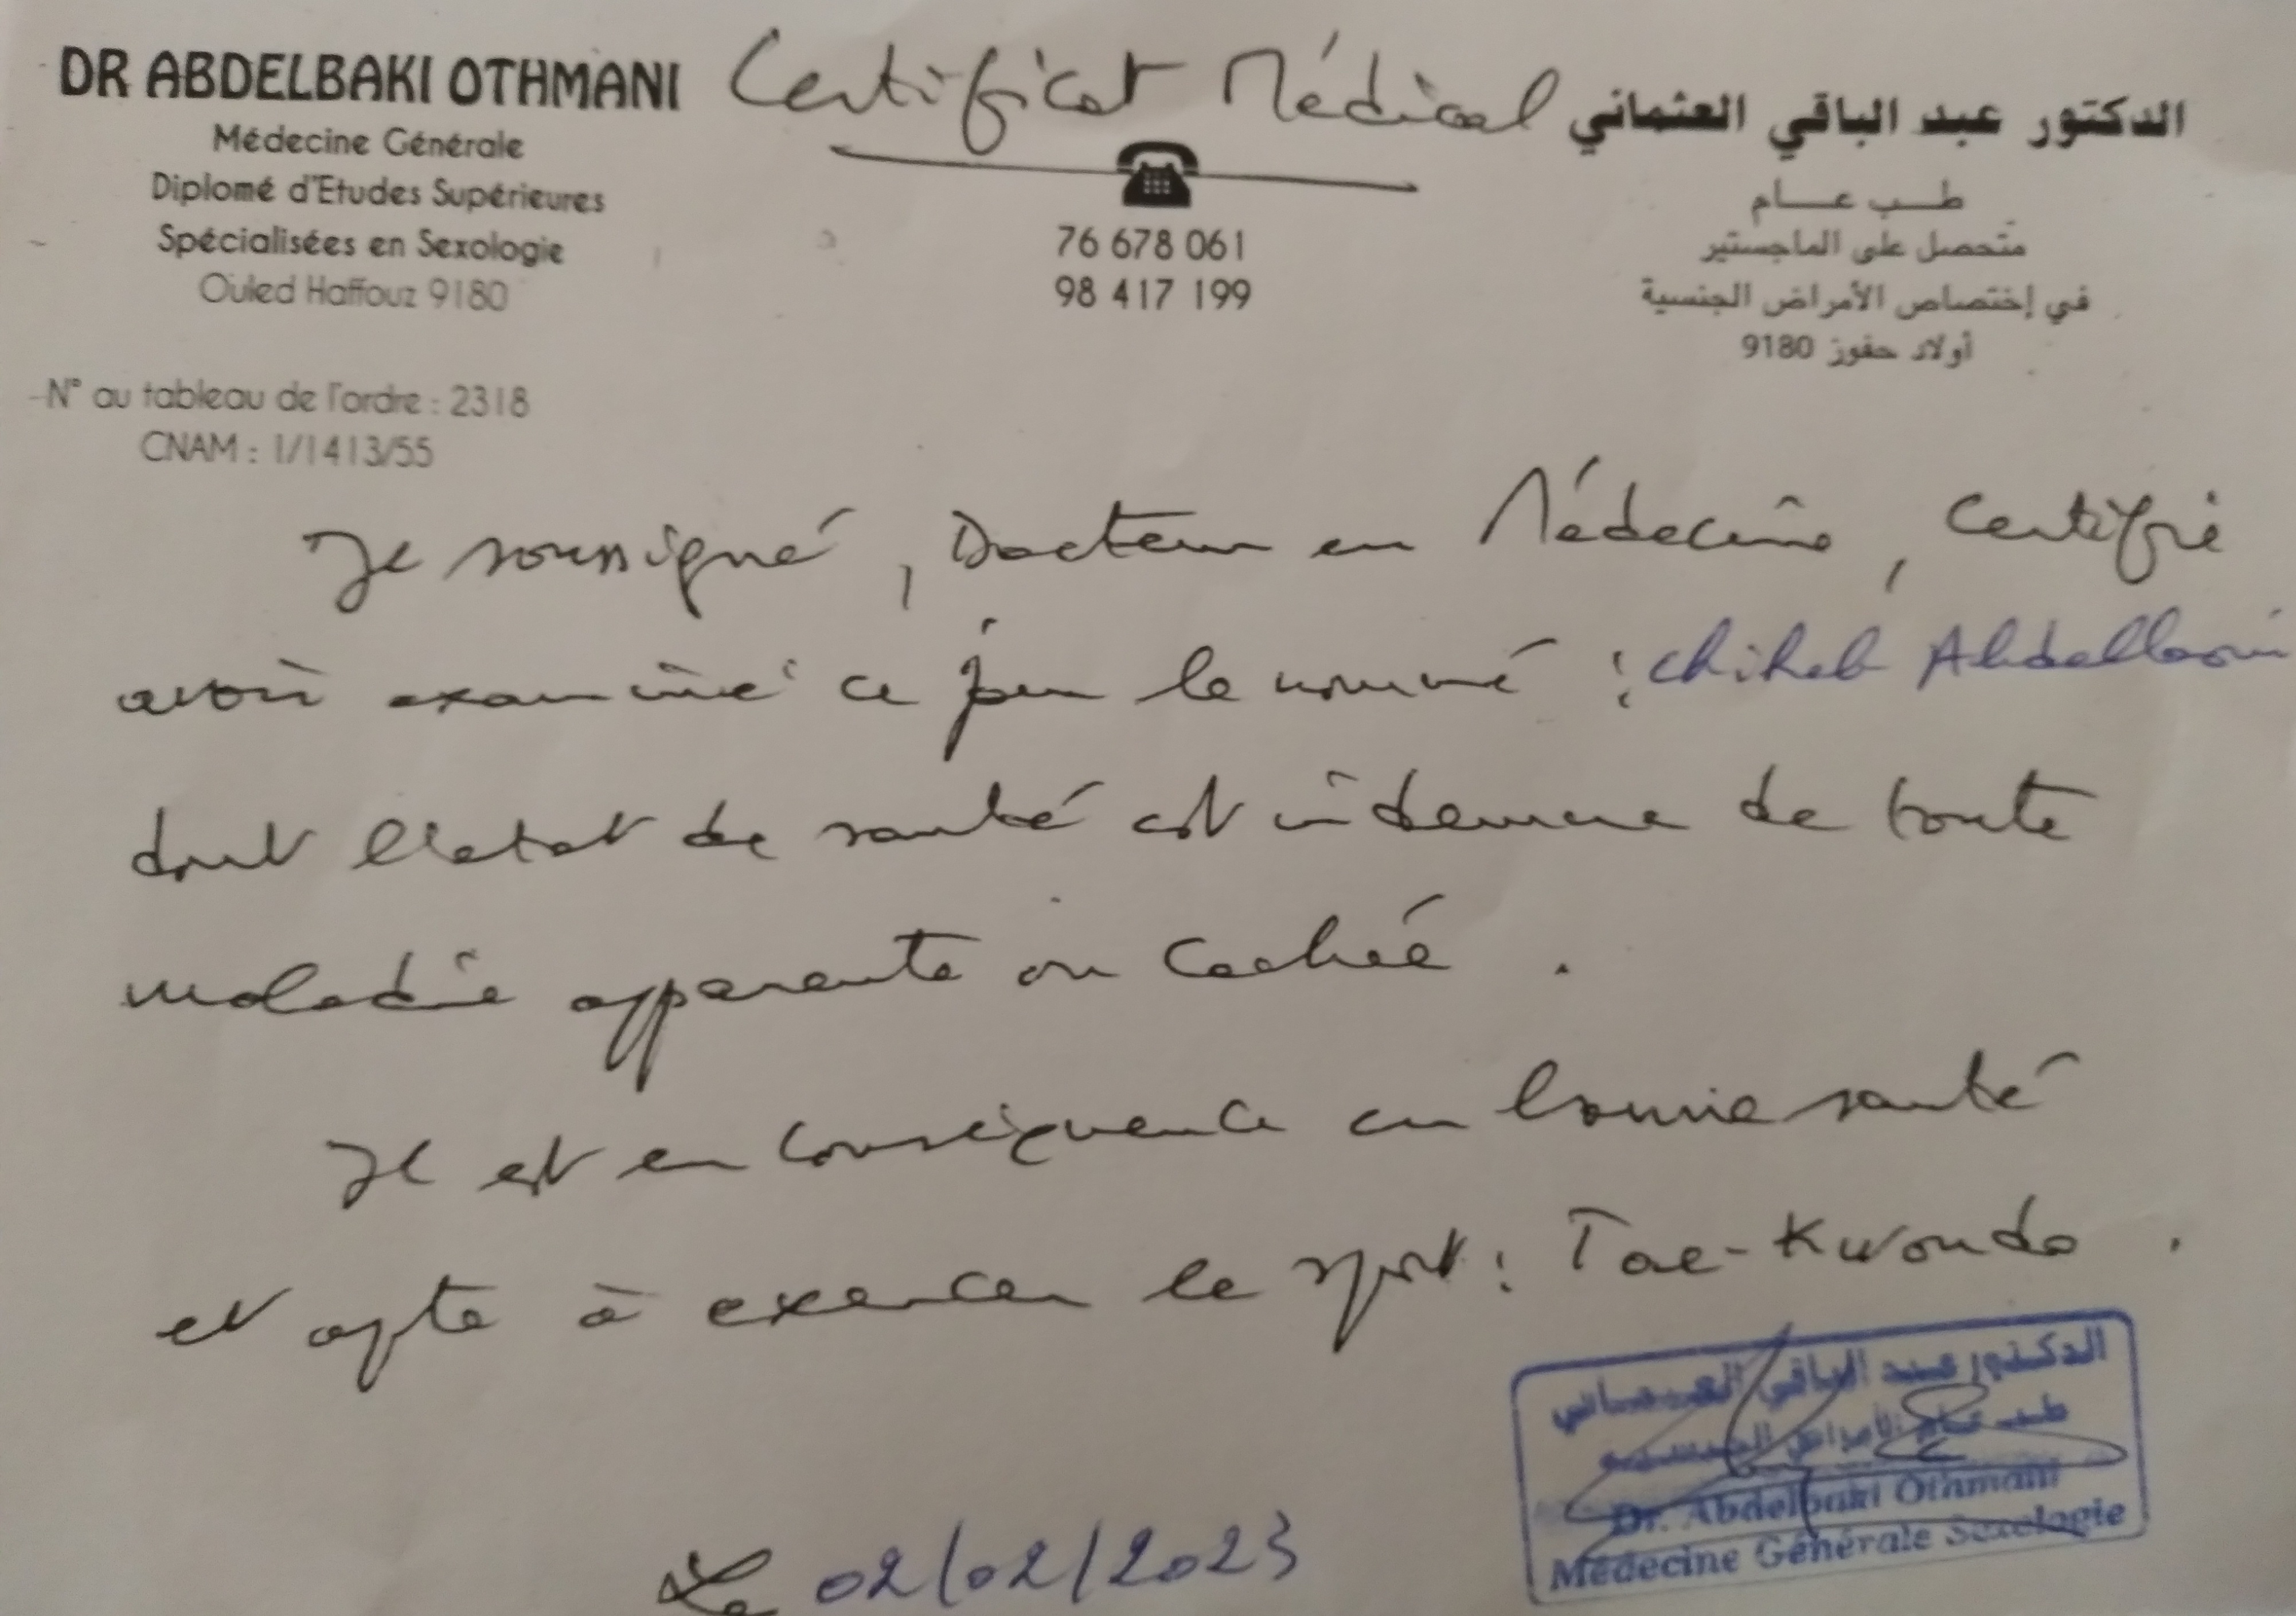 DR ABDELBAKI OTHMANI
Médecine Générale
Diplomé d'Etudes Supérieures
Spécialisées en Sexologie
Ouled Haffouz 9180
N° au tableau de l'ordre : 2318
CNAM : 1/1413/55
Certificat Médical
76 678 061
98 417 199
الدكتور عبد الباقي العثماني
طب عام
متحصل على الماجستير
في إختصاص الأمراض الجنسية
أولاد حفوز 9180
Je soussigné, Docteur en Médecine, Certifié
avoir examiné ce jour le nommé : Chiheb Abdellaoui
dont l'etat de santé est indemne de toute
maladie apparente ou cachée.
Il est en conséquence en bonne santé
et apte à exercer le sport : Tae-Kwondo.
الدكتور عبد الباقي العثماني
طب عام الأمراض الجنسية
Dr. Abdelbaki Othmani
Médecine Générale Sexologie
Le 02/02/2023